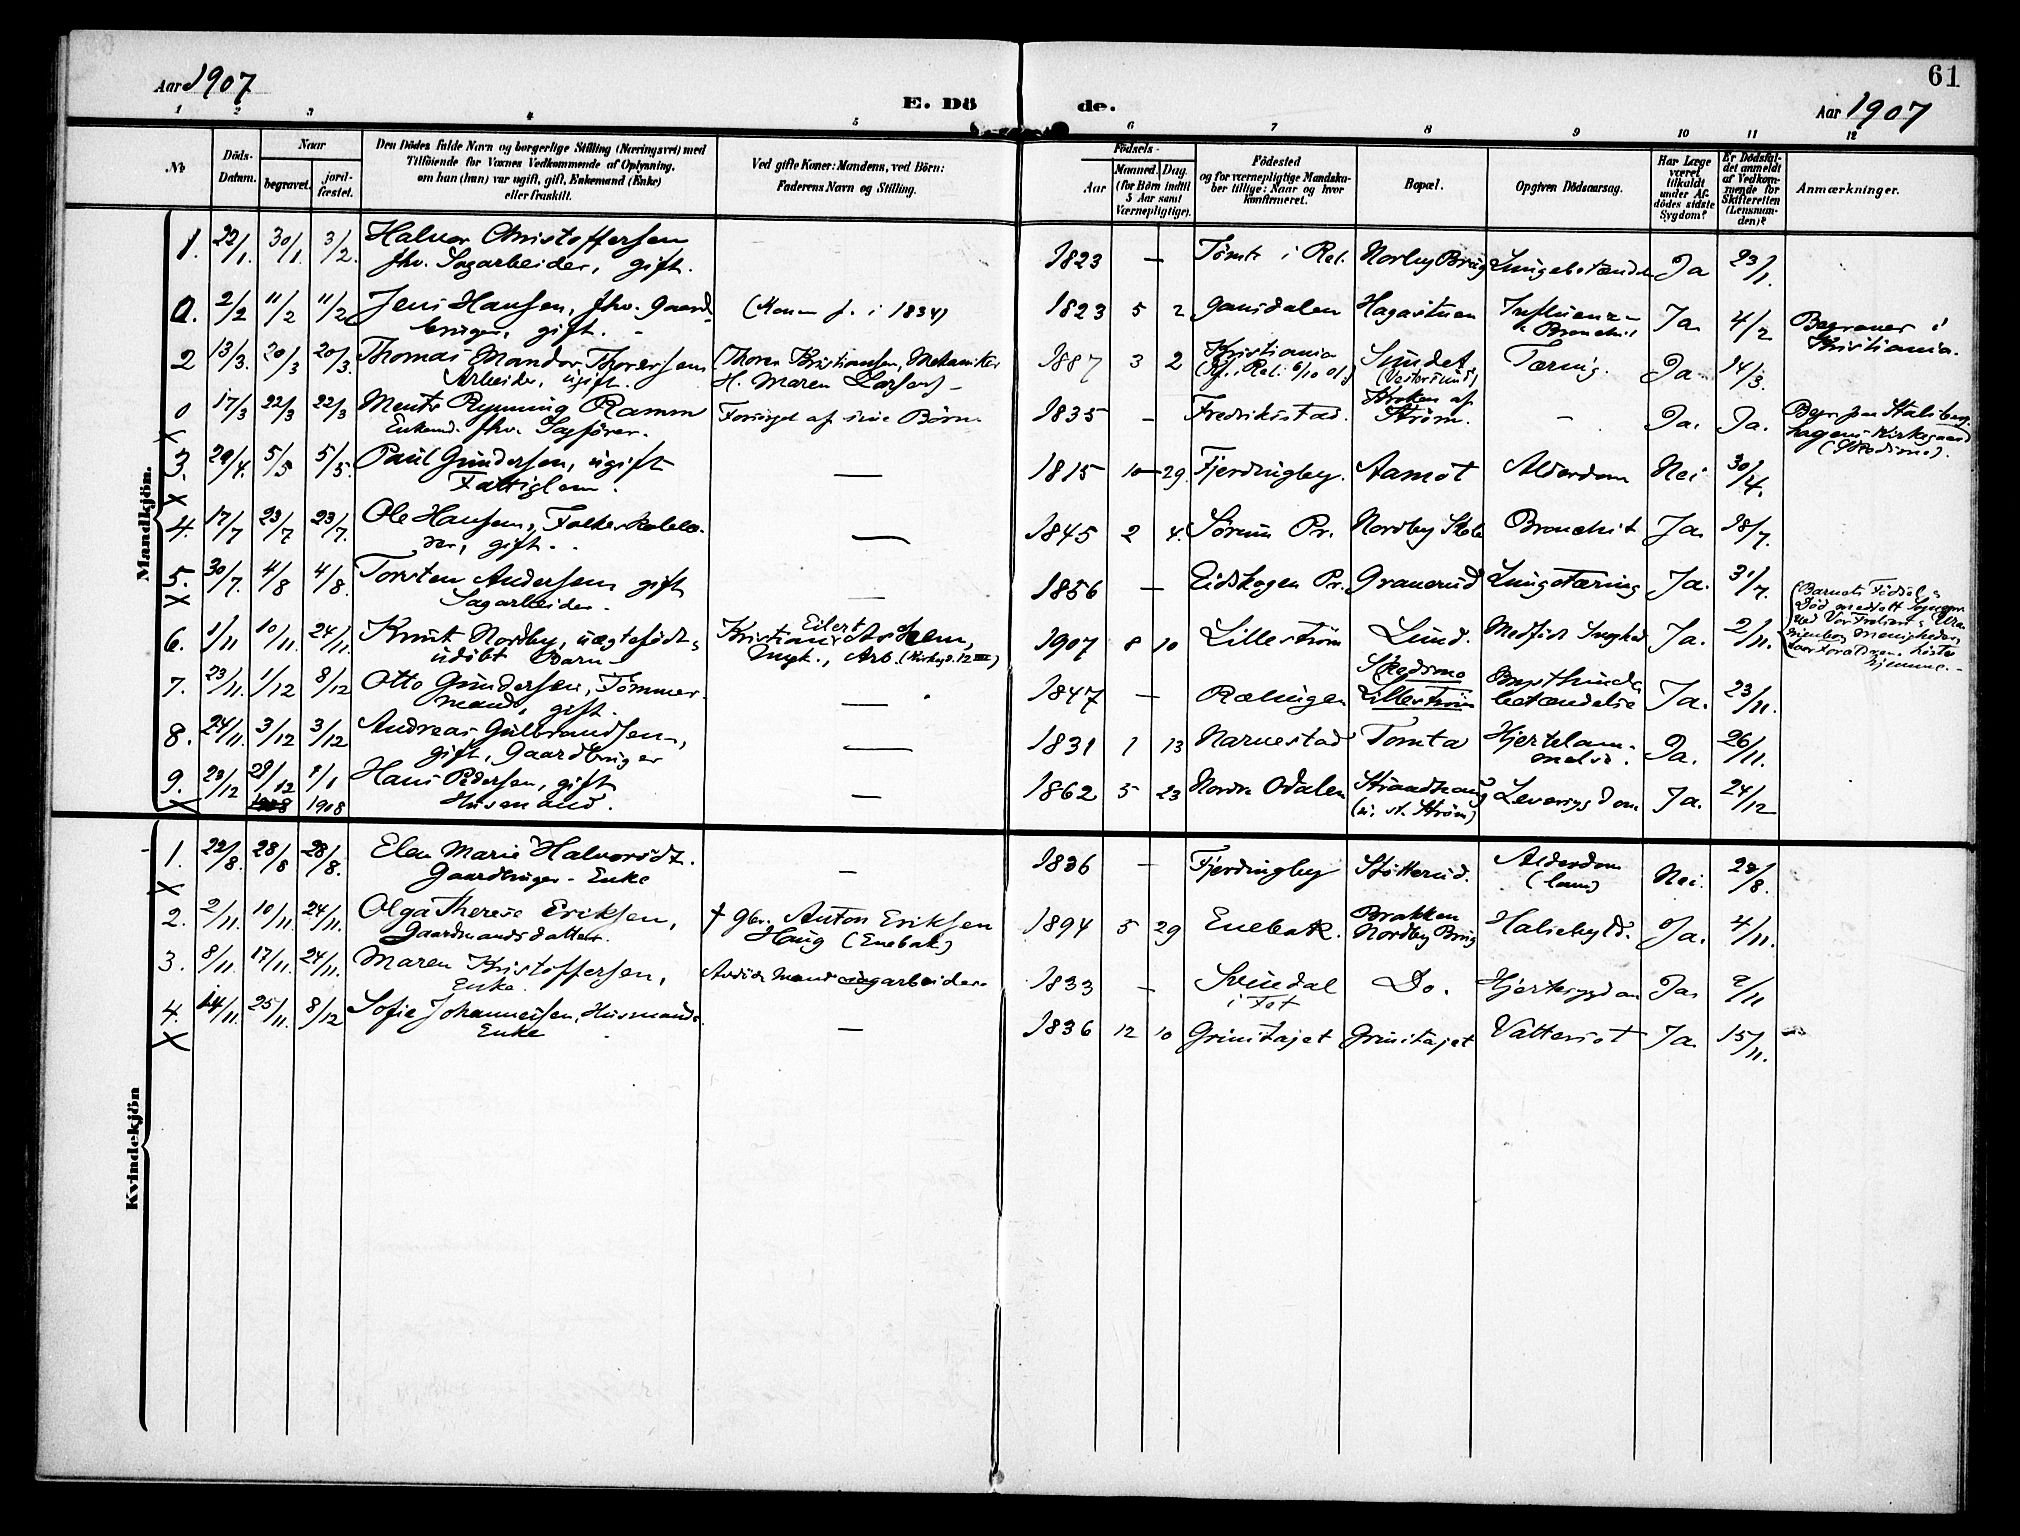 61
Aar 1907
E. Döde.
Aar 1907
1 2 3 4 5 6 7 8 9 10 11 12
No
Döds-Datum.
Naar
begravet.
jord-fæstet.
Den Dödes fulde Navn og borgerlige Stilling (Næringsvei) med
Tilföiende for Voxnes Vedkommende af Oplysning,
om han (hun) var ugift, gift, Enkemand (Enke)
eller fraskilt.
Ved gifte Koner: Mandens, ved Börn:
Faderens Navn og Stilling.
Födsels-
Aar
Maaned. Dag.
(for Börn indtil
5 Aar samt
Værnepligtige).
Födested
og for værnepligtige Mandska-
ber tillige: Naar og hvor
konfirmeret.
Bopæl.
Opgiven Dödsaarsag.
Har Læge
været
tilkaldt
under Af-
dödes sidste
Sygdom?
Er Dödsfal-
det anmeldt
af Vedkom-
mende for
Skifteretten
(Lensman-
den)?
Anmærkninger.
Mandkjön.
1. 22/1. 30/1. 3/2. Halvor Christoffersen 1823 — Tömte i Ræl. Norby Brug Lungebetændelse Ja 23/1.
fhv. Sagarbeider, gift.
0. 2/2 11/2 11/2 Jens Hansen, fhv. Gaard- (Konen f. i 1834) 1823 5 2 Gansdalen Hagastuen Influenza- Ja 4/2 Begraves i
bruger, gift. Bronchit Kristiania.
2 13/3. 20/3 20/3. Thomas Thoresen (Thoren Kristiansen, Mekaniker 1887 3 2 Kristiania Sundet Tæring. Ja 14/3.
Arbeider, ugift. H. Maren Larsen) (Kf. i Ræl. 6/10 01) (Vestersund)
0 17/3 22/3 22/3 Mentz Rynning Ramm Forsörget af sine Börn 1835 — Fredrikstad. Kroken af Ström. — Ja. Ja. Begr. paa
Enkemd. fhv. Sagförer. Kirkegaard
(Skedsmo).
3. 29/4. 5/5 5/5. Paul Gundersen, ugift — 1815 10 29 Fjerdingby. Aamot Alderdom Nei 30/4.
X Fattiglem.
4. 17/7 23/7 23/7. Ole Hansen, gift. — 1845 2 4. Sörum Pr. Nordby Skole Bronchit Ja. 18/7.
5. 30/7. 4/8 4/8. Torsten Andersen gift — 1856 — Eidskogen Pr. Granerud Lungetæring Ja. 31/7.
X Sagarbeider.
6. 1/11 10/11. 24/11. Knut Nordby, uægtefödt, Kristian Eilert 1907 8 10 Lilleström Lund. Medfödt Svaghed Ja. 2/11.
udöbt Barn Ungk., Arb.
Barnets Födsel
7. 23/11. 1/12 8/12 Otto Gundersen, Tömmer- — 1847 — Rælingen Skedsmo Brysthinde- Ja. 23/11.
mand, gift. Lilleström betændelse
8. 24/11. 3/12 3/12 Andreas Gulbrandsen, — 1831 1 13 Narnestad Tomta Hjertelam- Ja. 26/11.
gift, Gaardbruger melse.
9. 23/12 28/12 1/1 Hans Pedersen, gift — 1862 5 23 Nordre Odalen Strandhaug Leversygdom Ja. 24/12
X 1908 1908 Husmand. (u. st. Ström)
Kvindekjön
1. 22/8. 28/8 28/8. Elen Marie Halvorsdt. — 1836 — Fjerdingby Stötterud. Alderdom Nei. 23/8.
X Gaardbruger-Enke (lam)
2. 2/11. 10/11. 24/11. Olga Therese Eriksen, † Gbr. Anton Eriksen 1894 5 29 Enebak. Brakken Halsebyld. Ja. 4/11.
Gaardmandsdatter. Haug (Enebak) Nordby Brug
3. 8/11. 17/11. 24/11. Maren Kristoffersen, 1833 — Svindal Do. Hjertesygdom Ja 9/11
Enke.
4. 14/11. 25/11. 8/12 Sofie Johannessen, Husmands- — 1836 12 10 Grinitajet Grinitajet Vattersot Ja 15/11.
X Enke